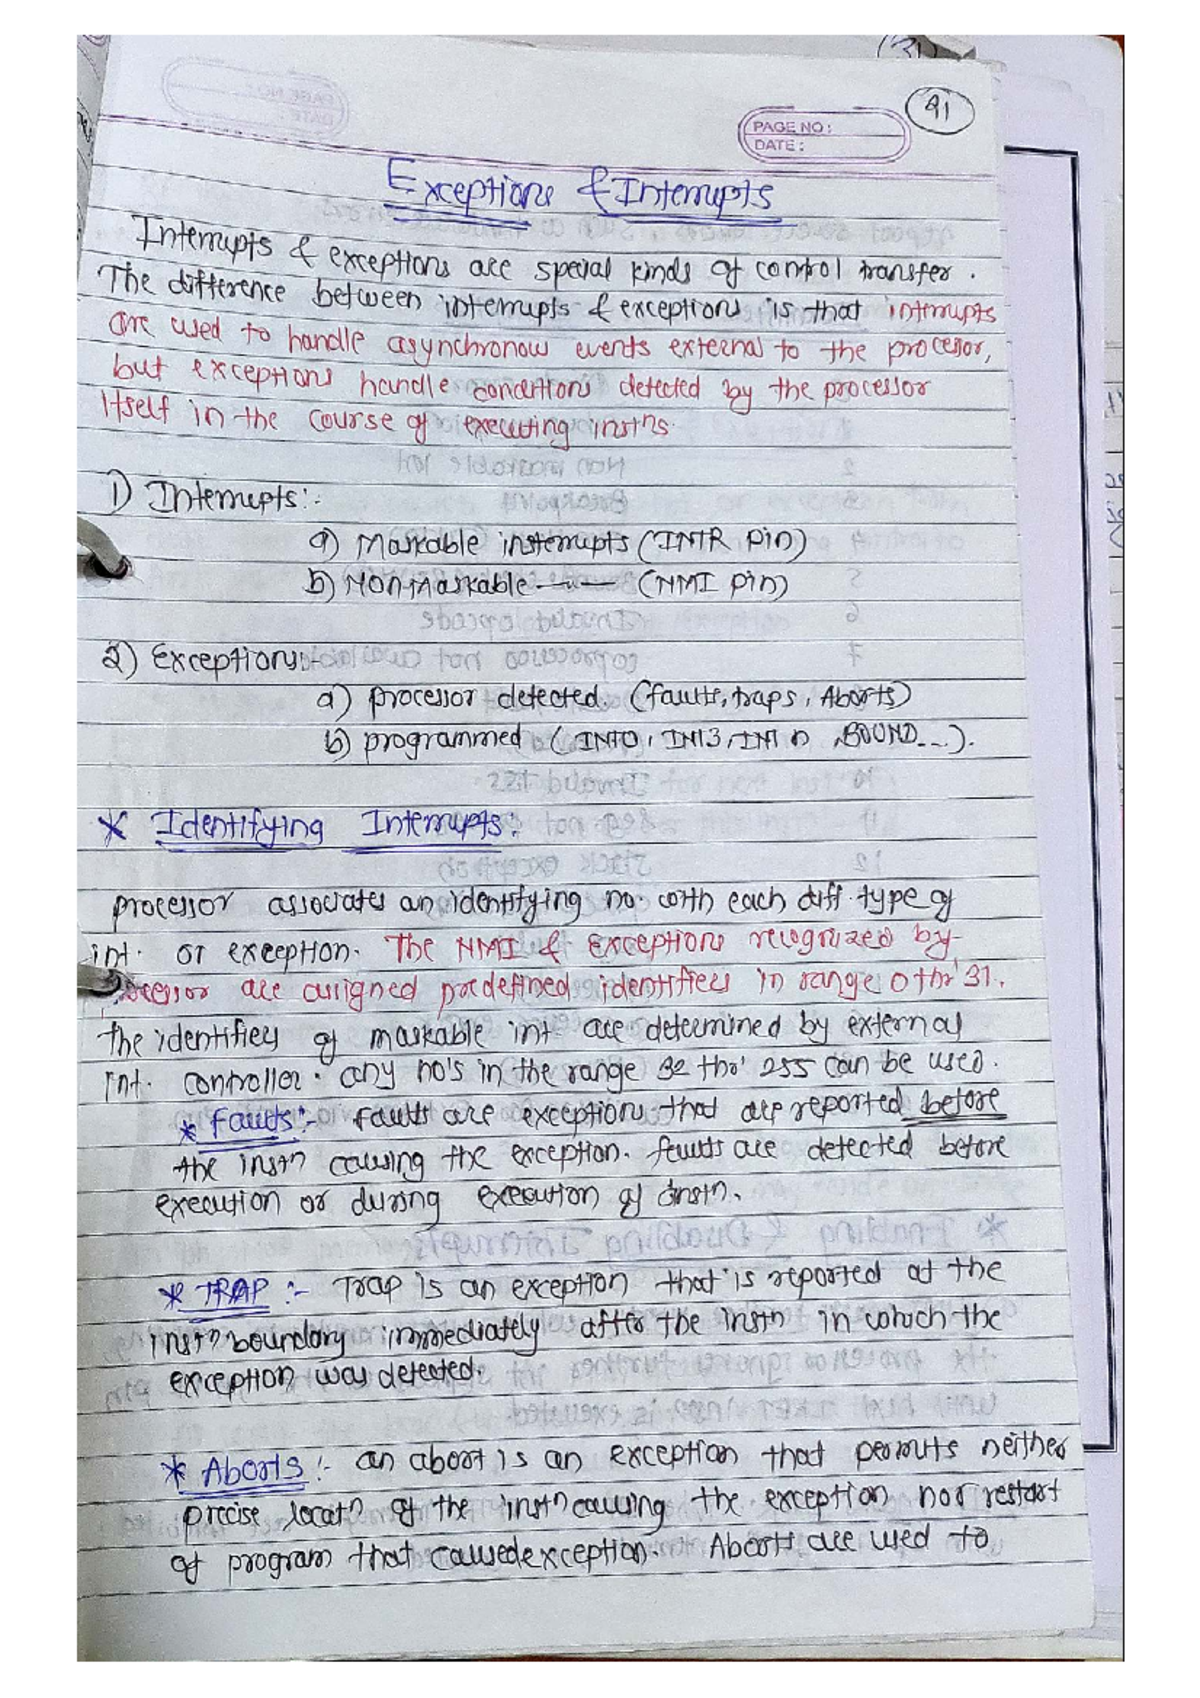 (31)
91
PAGE NO:
DATE:
Exceptions & Interrupts
Interrupts & exceptions are special kinds of control transfer.
The difference between interrupts & exceptions is that interrupts
are used to handle asynchronous events external to the processor,
but exceptions handle conditions detected by the processor
itself in the course of executing instns.
1) Interrupts:-
a) Maskable insterrupts (INTR Pin)
b) NON-Maskable —"— (NMI pin)
2) Exceptions:-
a) processor detected. (faults, traps, Aborts)
b) programmed (INTO, INT3, INT n, BOUND...).
* Identifying Interrupts:
processor associates an identifying no. with each diff. type of
int. or exception. The NMI & Exceptions recognized by
processor are assigned predefined identifiers in range 0 thr' 31.
the identifiers of maskable int are determined by external
int. controller. any no's in the range 32 thr' 255 can be used.
* Faults:- faults are exceptions that are reported before
the instn causing the exception. faults are detected before
execution or during execution of instn.
* TRAP :- Trap is an exception that is reported at the
instn boundary immediately after the instn in which the
exception was detected.
* Aborts:- an abort is an exception that permits neither
precise locatn of the instn causing the exception nor restart
of program that caused exception. Aborts are used to